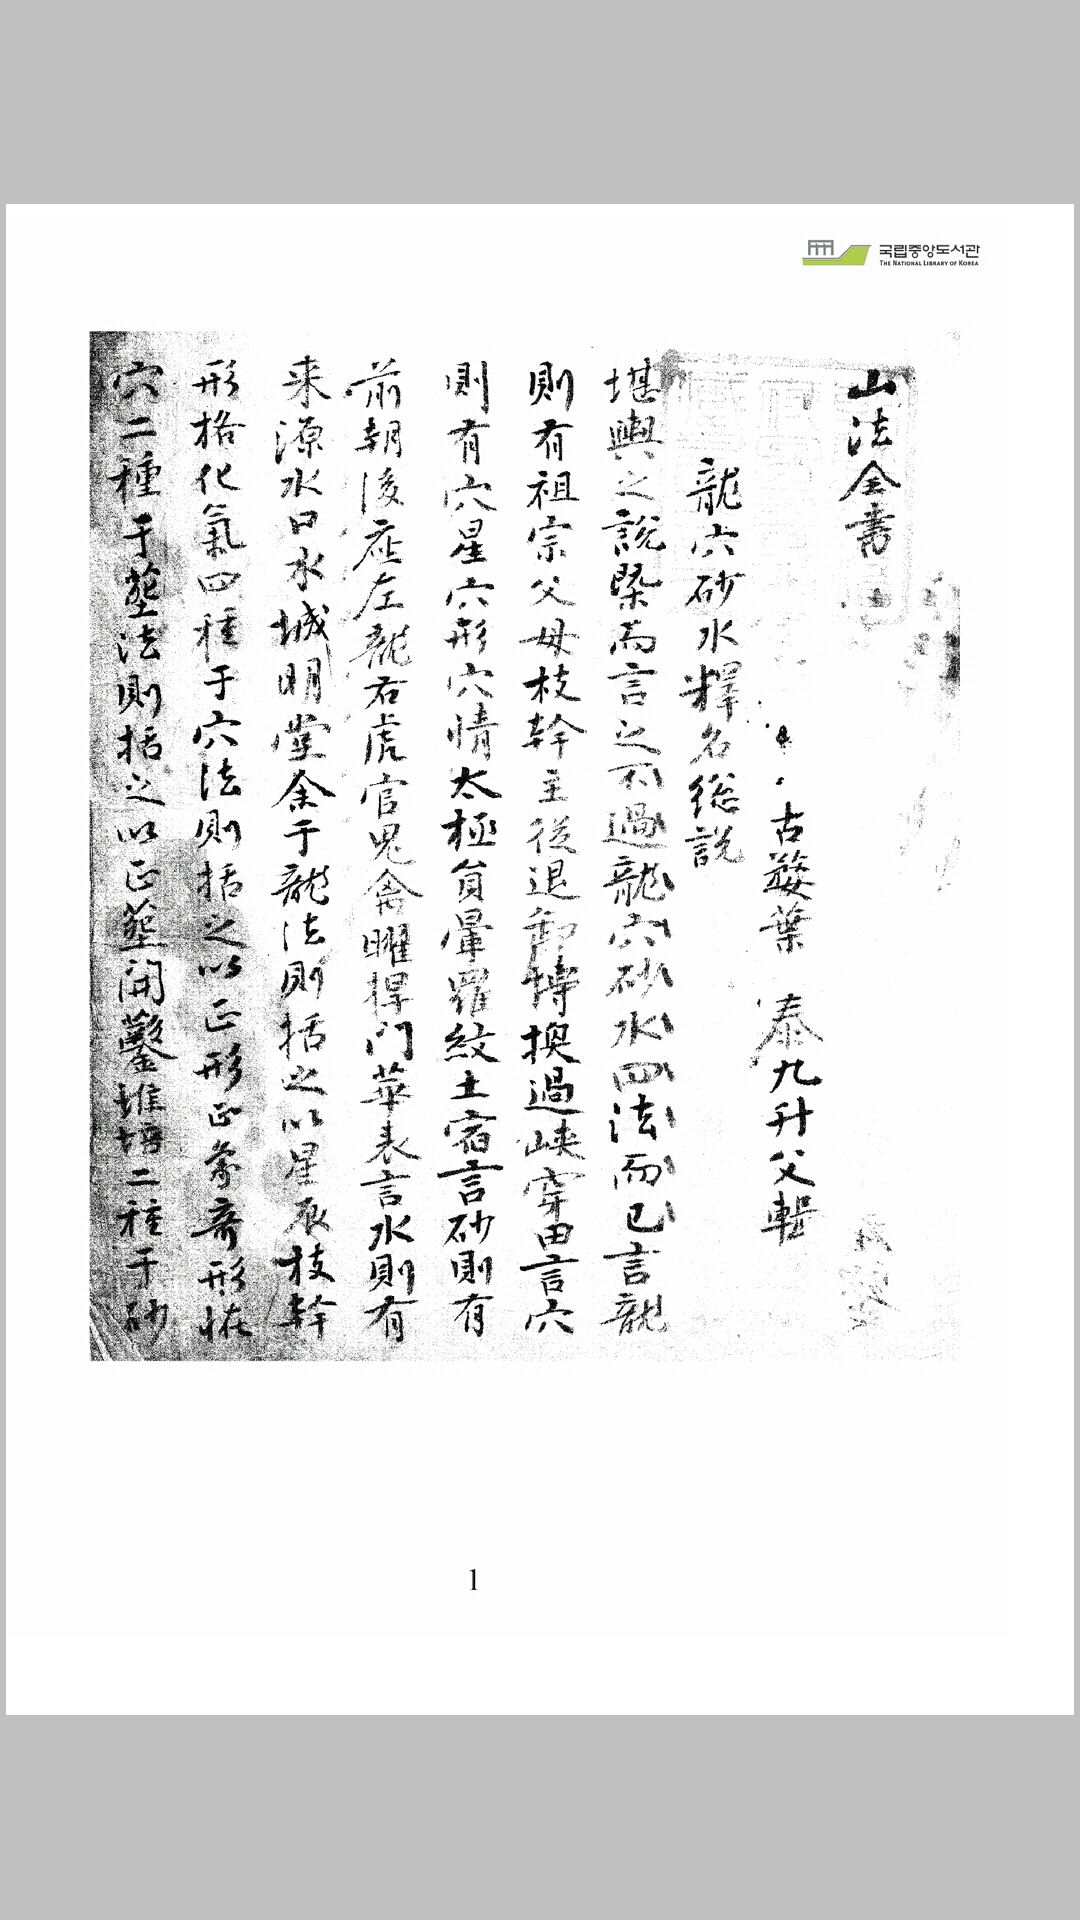 국립중앙도서관
THE NATIONAL LIBRARY OF KOREA
山法全書
古婺葉 泰九升父輯
龍穴砂水釋名総說
堪輿之說槩而言之不過龍穴砂水四法而已言龍
則有祖宗父母枝幹主從退卸愽換過峽穿田言穴
則有穴星穴形穴情太極貟暈羅紋土宿言砂則有
前朝後应左龍右虎官鬼禽曜捍門華表言水則有
来源水口水城明堂余于龍法則括之以星辰枝幹
形格化氣四種于穴法則括之以正形正象竒形恠
穴二種于塟法則括之以正塟開鑿堆培二種于砂
1